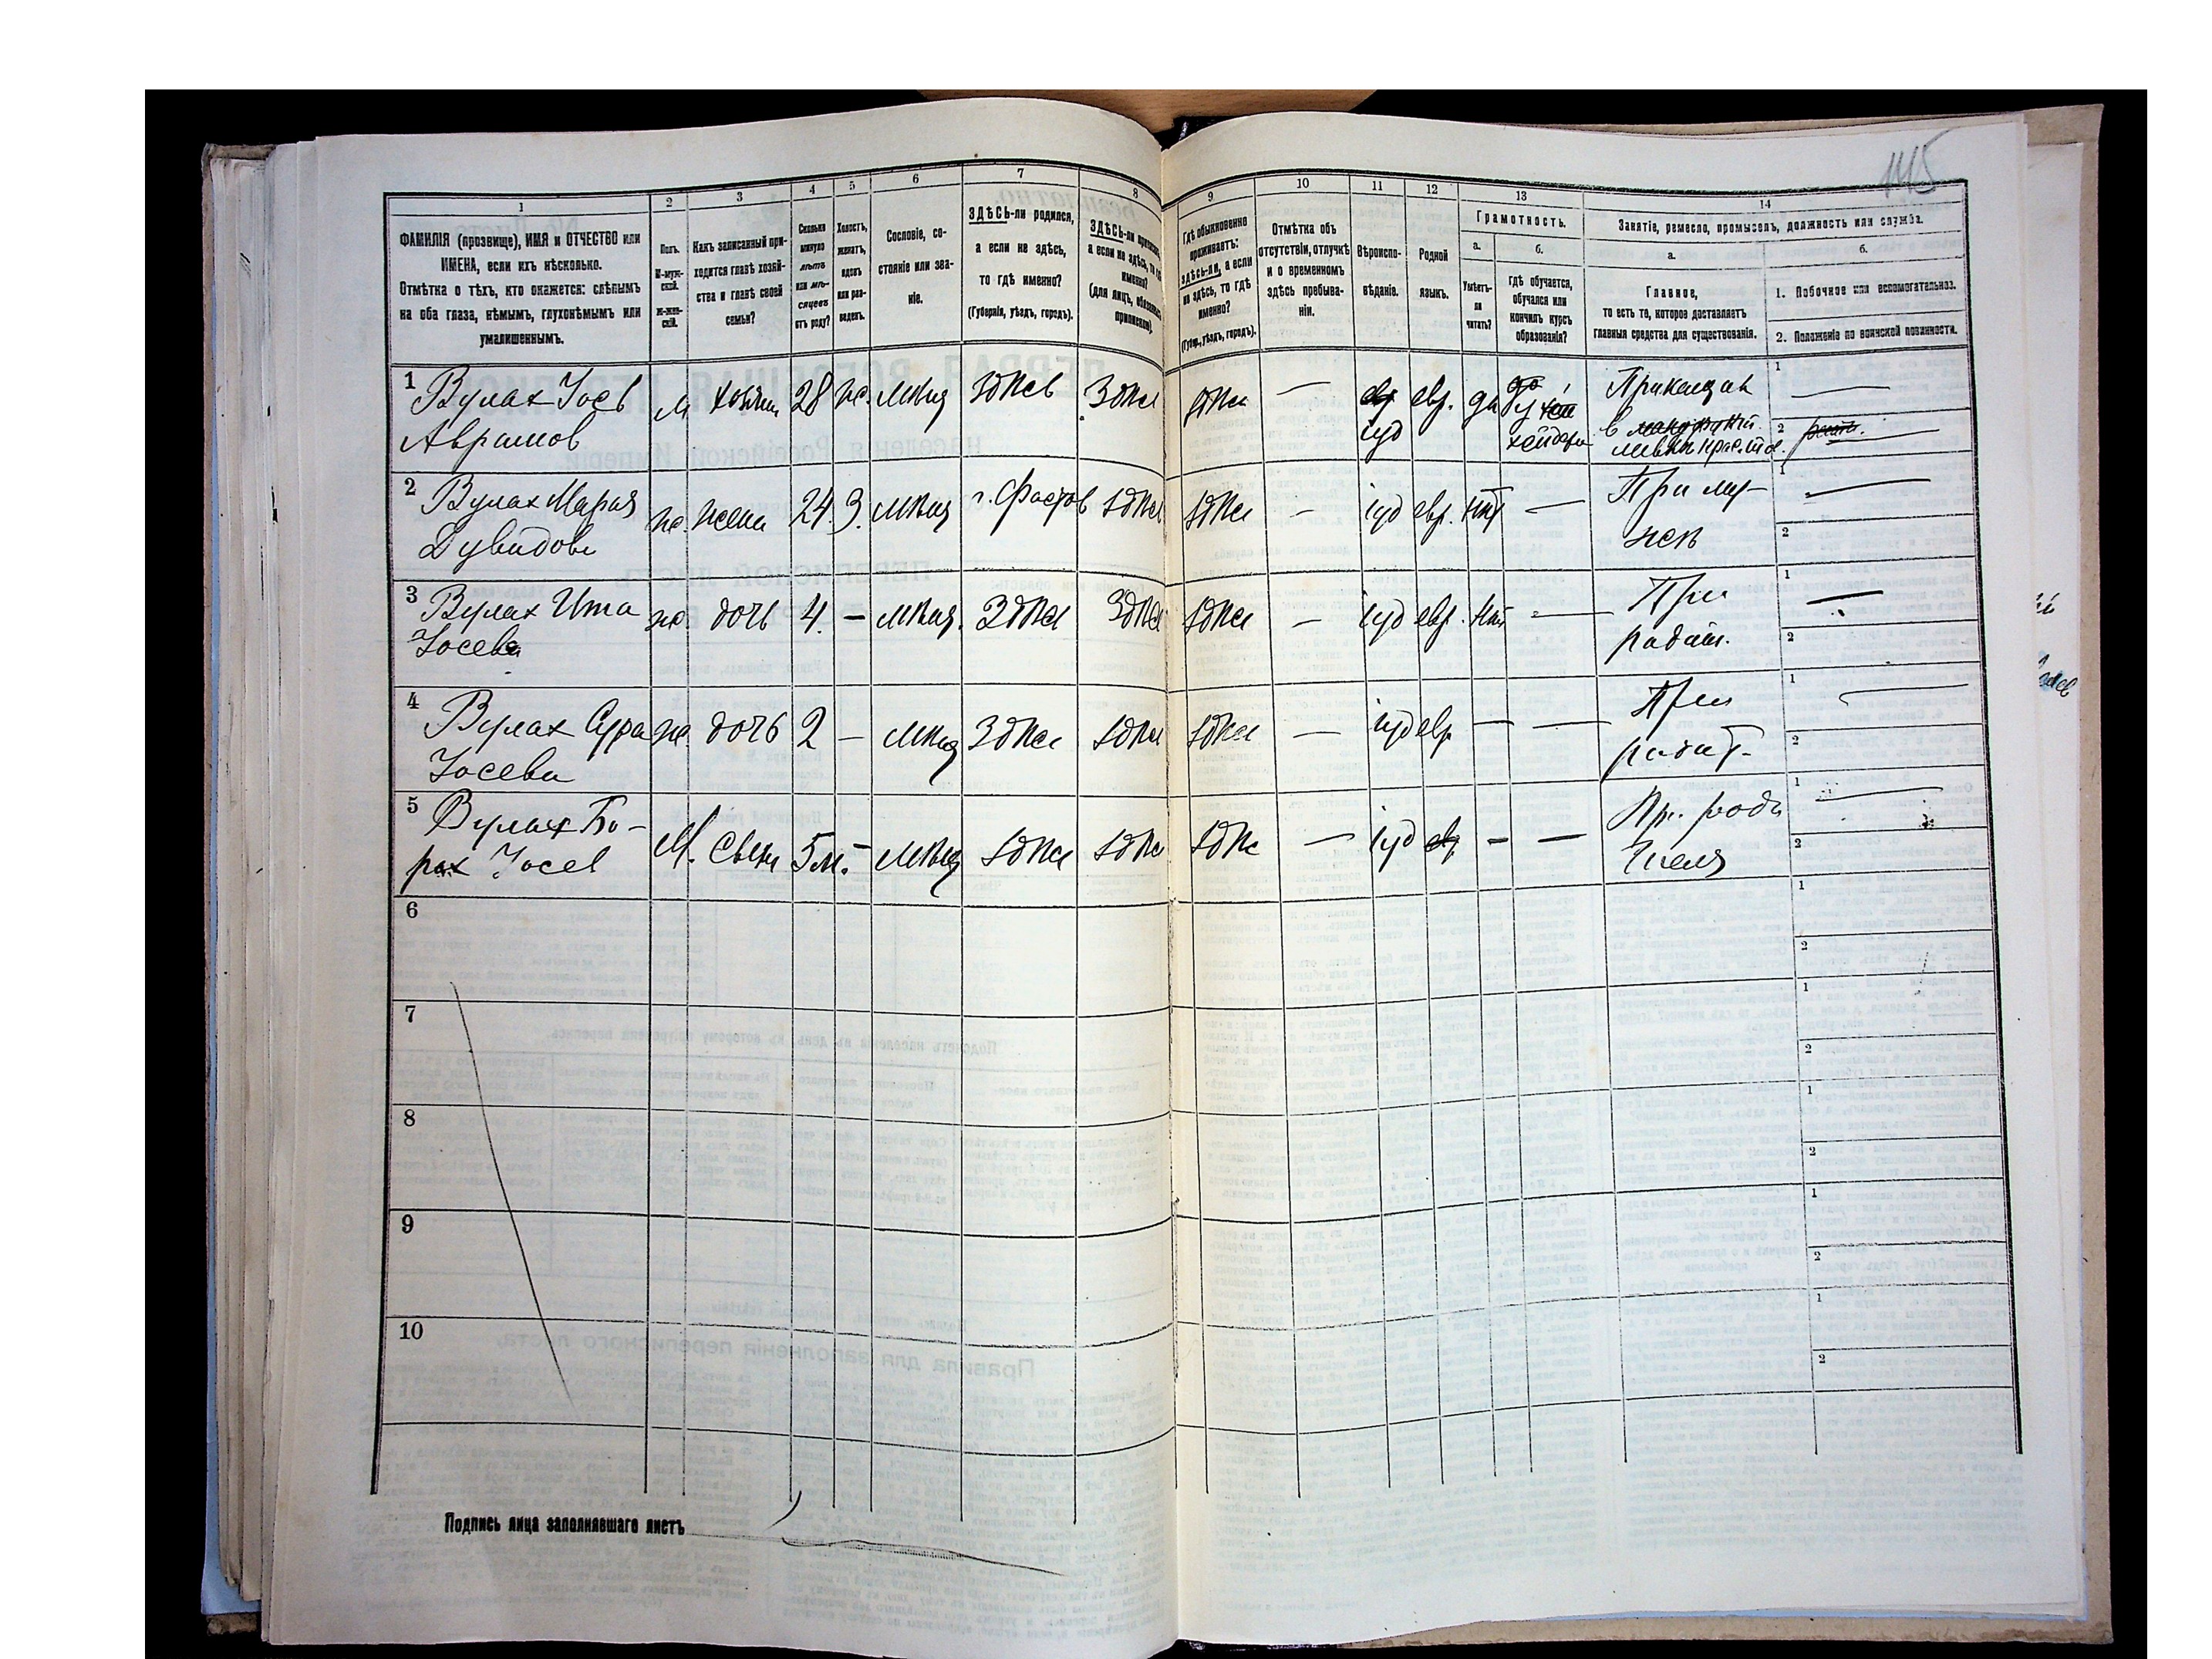 145
1 2 3 4 5 6 7 8 9 10 11 12 13 14
ФАМИЛІЯ (прозвище), ИМЯ и ОТЧЕСТВО или
ИМЕНА, если ихъ нѣсколько.
Отмѣтка о тѣхъ, кто окажется: слѣпымъ
на оба глаза, нѣмымъ, глухонѣмымъ или
умалишеннымъ.
Полъ.
М-муж-
ской.
Ж-жен-
скій.
Какъ записанный при-
ходится главѣ хозяй-
ства и главѣ своей
семьи?
Сколько
минуло
лѣтъ
или мѣ-
сяцевъ
отъ роду?
Холостъ,
женатъ,
вдовъ
или раз-
веденъ.
Сословіе, со-
стояніе или зва-
ніе.
ЗДѢСЬ-ли родился,
а если не здѣсь,
то гдѣ именно?
(Губернія, уѣздъ, городъ).
ЗДѢСЬ-ли
а если не здѣсь, то гдѣ
именно?
(для лицъ,
Гдѣ обыкновенно
проживаетъ:
здѣсь-ли, а если
не здѣсь, то гдѣ
именно?
(Губер., уѣздъ, городъ).
Отмѣтка объ
отсутствіи, отлучкѣ
и о временномъ
здѣсь пребыва-
ніи.
Вѣроиспо-
вѣданіе.
Родной
языкъ.
Грамотность.
а. б.
Умѣетъ-
ли
читать?
Гдѣ обучается,
обучался или
кончилъ курсъ
образованія?
Занятіе, ремесло, промыселъ, должность или служба.
а. б.
Главное,
то есть то, которое доставляетъ
главныя средства для существованія.
1. Побочное или вспомогательное.
2. Положеніе по воинской повинности.
1 Вулах Иось м хозяин 28 ж. мѣщ здѣсь здѣсь здѣсь — евр. да Приказчик 1 —
Аврамов іуд хейдер в 2 —
2 Вулах Марья ж. жена 24. З. мѣщ г. Фастов здѣсь здѣсь — іуд евр. нѣт — При му- 1 —
Дувидова жѣ 2
3 Вулах Ита ж. дочь 4. — мѣщ. здѣся здѣся здѣся — іуд евр. нѣт — При 1 —
Иосева родит. 2
4 Вулах Сура ж. дочь 2 — мѣщ здѣся здѣся здѣся — іуд евр — — При 1 —
Иосева родит. 2
5 Вулах Бо- М. Сын 5м. — мѣщ здѣся здѣся здѣс — іуд евр — — Пр. роди 1 —
рах Иосев теля 2
6 1
2
7 1
2
8 1
2
9 1
2
10 1
2
Подпись лица заполнявшаго листъ